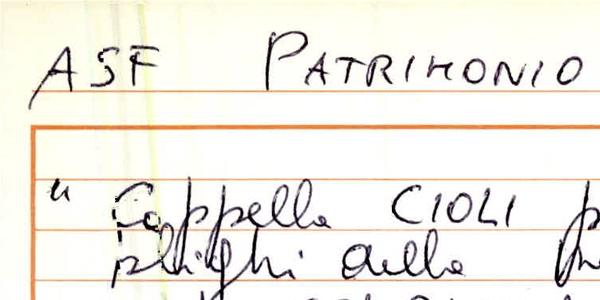 ASF PATRIMONIO
" Cappella CIOLI
obblighi della